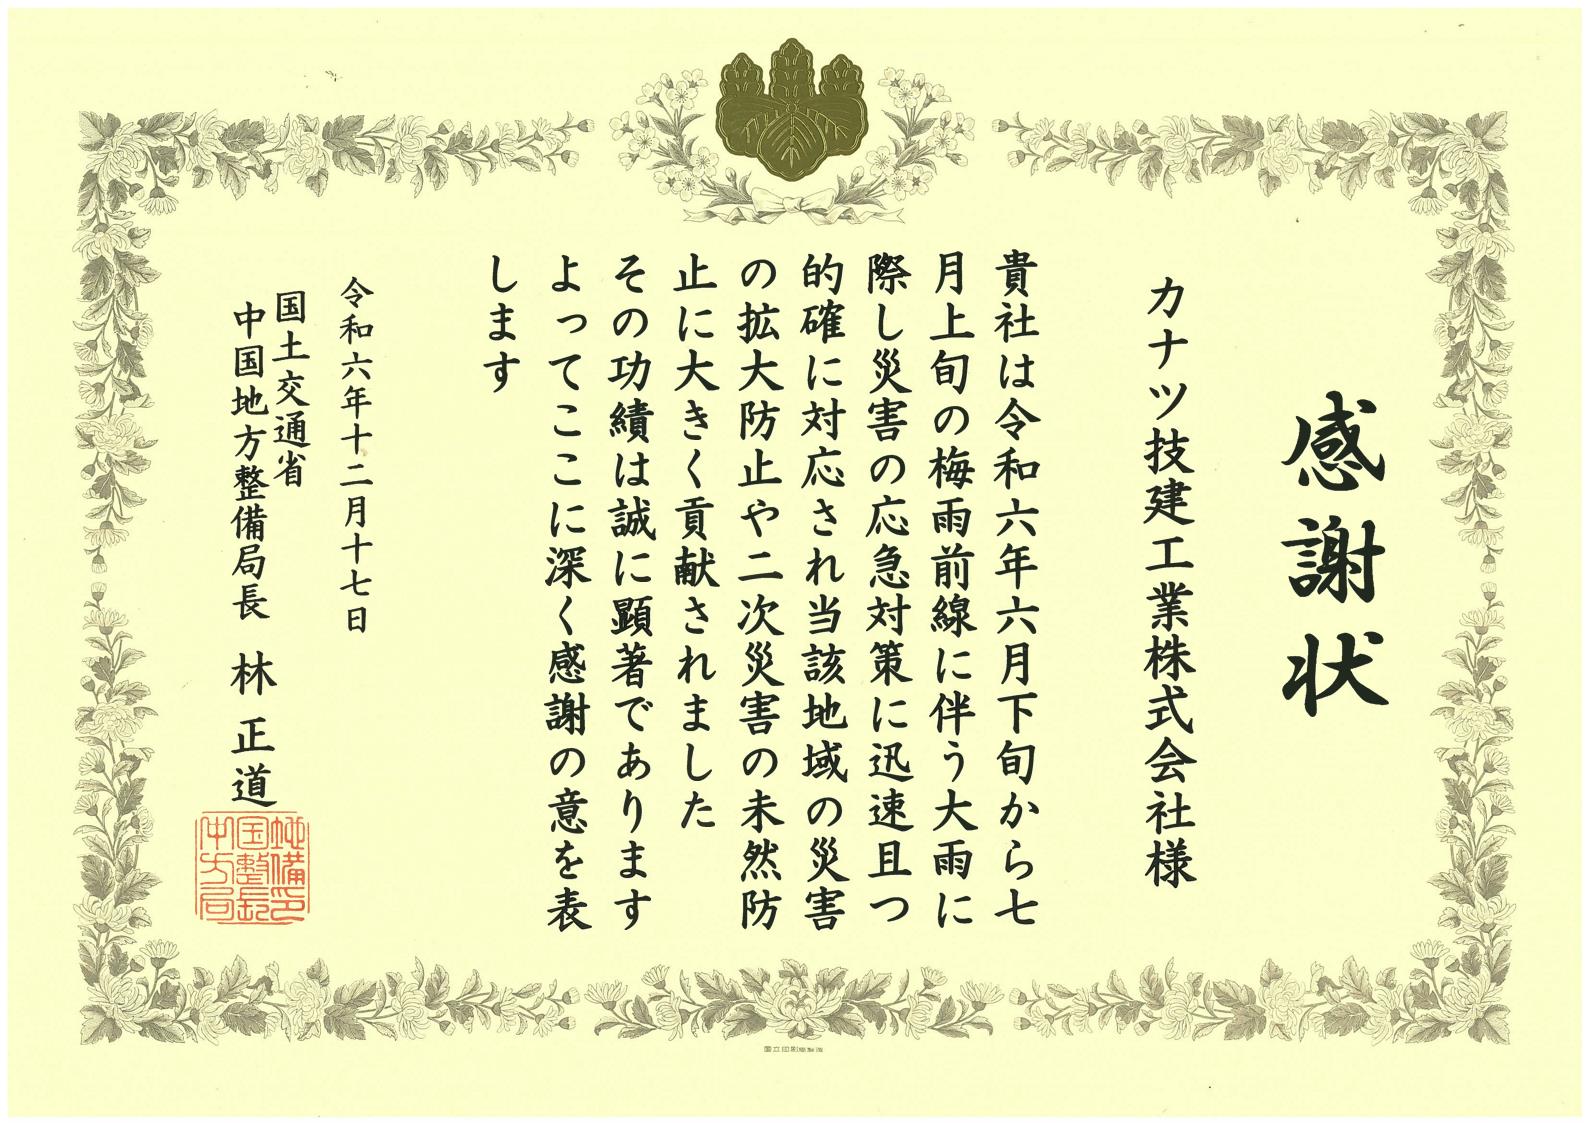 感謝状
カナツ技建工業株式会社様
貴社は令和六年六月下旬から七
月上旬の梅雨前線に伴う大雨に
際し災害の応急対策に迅速且つ
的確に対応され当該地域の災害
の拡大防止や二次災害の未然防
止に大きく貢献されました
その功績は誠に顕著であります
よってここに深く感謝の意を表
します
令和六年十二月十七日
国土交通省
中国地方整備局長 林正道
中国地
方整備
局長印
国立印刷局製造